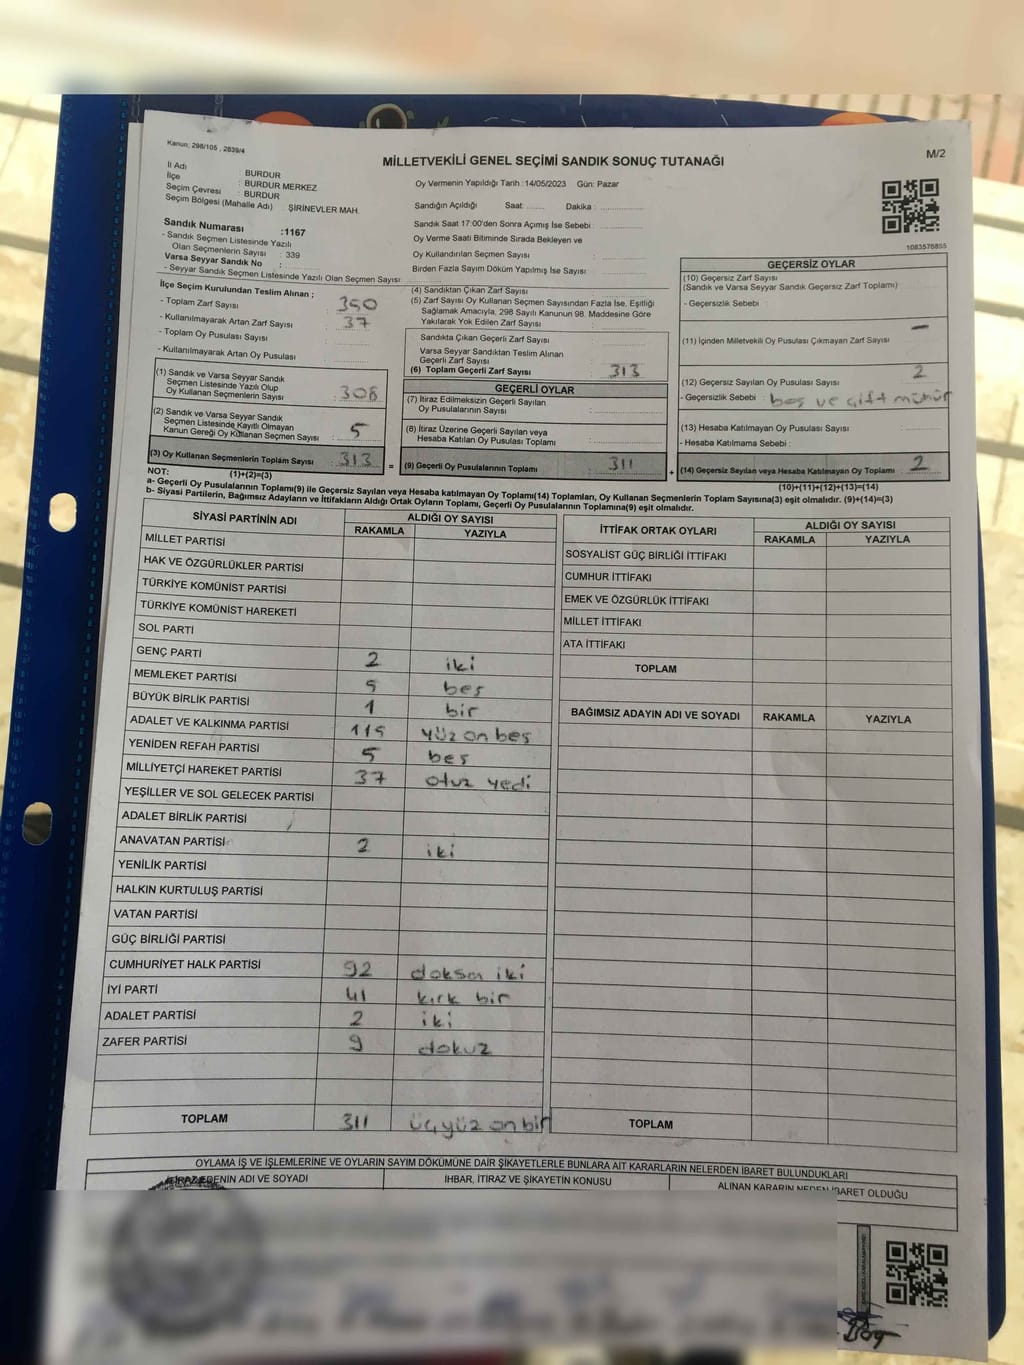 Kanun, 298/105 , 2839/4
MİLLETVEKİLİ GENEL SEÇİMİ SANDIK SONUÇ TUTANAĞI
M/2
İl Adı BURDUR
İlçe BURDUR MERKEZ
Seçim Çevresi : BURDUR
Seçim Bölgesi (Mahalle Adı) : ŞİRİNEVLER MAH.
Sandık Numarası :1167
- Sandık Seçmen Listesinde Yazılı
Olan Seçmenlerin Sayısı : 339
Varsa Seyyar Sandık No :
- Seyyar Sandık Seçmen Listesinde Yazılı Olan Seçmen Sayısı :
Oy Vermenin Yapıldığı Tarih : 14/05/2023 Gün: Pazar
Sandığın Açıldığı Saat: Dakika :
Sandık Saat 17:00'den Sonra Açımış İse Sebebi :
Oy Verme Saati Bitiminde Sırada Bekleyen ve
Oy Kullandırılan Seçmen Sayısı :
Birden Fazla Sayım Döküm Yapılmış İse Sayısı :
1083576855
İlçe Seçim Kurulundan Teslim Alınan ;
- Toplam Zarf Sayısı : 350
- Kullanılmayarak Artan Zarf Sayısı : 37
- Toplam Oy Pusulası Sayısı :
- Kullanılmayarak Artan Oy Pusulası
(1) Sandık ve Varsa Seyyar Sandık
Seçmen Listesinde Yazılı Olup
Oy Kullanan Seçmenlerin Sayısı : 308
(2) Sandık ve Varsa Seyyar Sandık
Seçmen Listesinde Kayıtlı Olmayan
Kanun Gereği Oy Kullanan Seçmen Sayısı : 5
(3) Oy Kullanan Seçmenlerin Toplam Sayısı : 313
(4) Sandıktan Çıkan Zarf Sayısı
(5) Zarf Sayısı Oy Kullanan Seçmen Sayısından Fazla İse, Eşitliği
Sağlamak Amacıyla, 298 Sayılı Kanunun 98. Maddesine Göre
Yakılarak Yok Edilen Zarf Sayısı :
Sandıkta Çıkan Geçerli Zarf Sayısı
Varsa Seyyar Sandıktan Teslim Alınan
Geçerli Zarf Sayısı
(6) Toplam Geçerli Zarf Sayısı : 313
GEÇERLİ OYLAR
(7) İtiraz Edilmeksizin Geçerli Sayılan
Oy Pusulalarının Sayısı :
(8) İtiraz Üzerine Geçerli Sayılan veya
Hesaba Katılan Oy Pusulası Toplamı :
= (9) Geçerli Oy Pusulalarının Toplamı : 311
GEÇERSİZ OYLAR
(10) Geçersiz Zarf Sayısı
(Sandık ve Varsa Sandık Geçersiz Zarf Toplamı)
- Geçersizlik Sebebi :
(11) İçinden Milletvekili Oy Pusulası Çıkmayan Zarf Sayısı –
(12) Geçersiz Sayılan Oy Pusulası Sayısı : 2
- Geçersizlik Sebebi : boş ve çift mühür
(13) Hesaba Katılmayan Oy Pusulası Sayısı :
- Hesaba Katılmama Sebebi :
+ (14) Geçersiz Sayılan veya Hesaba Katılmayan Oy Toplamı : 2
NOT: (1)+(2)=(3)
(10)+(11)+(12)+(13)=(14)
a- Geçerli Oy Pusulalarının Toplamı(9) ile Geçersiz Sayılan veya Hesaba katılmayan Oy Toplamı(14) Toplamları, Oy Kullanan Seçmenlerin Toplam Sayısına(3) eşit olmalıdır. (9)+(14)=(3)
b- Siyasi Partilerin, Bağımsız Adayların ve İttifakların Aldığı Ortak Oyların Toplamı, Geçerli Oy Pusulalarının Toplamına(9) eşit olmalıdır.
SİYASİ PARTİNİN ADI ALDIĞI OY SAYISI
RAKAMLA YAZIYLA
MİLLET PARTİSİ
HAK VE ÖZGÜRLÜKLER PARTİSİ
TÜRKİYE KOMÜNİST PARTİSİ
TÜRKİYE KOMÜNİST HAREKETİ
SOL PARTİ
GENÇ PARTİ 2 iki
MEMLEKET PARTİSİ 5 beş
BÜYÜK BİRLİK PARTİSİ 1 bir
ADALET VE KALKINMA PARTİSİ 115 yüz on beş
YENİDEN REFAH PARTİSİ 5 beş
MİLLİYETÇİ HAREKET PARTİSİ 37 otuz yedi
YEŞİLLER VE SOL GELECEK PARTİSİ
ADALET BİRLİK PARTİSİ
ANAVATAN PARTİSİ 2 iki
YENİLİK PARTİSİ
HALKIN KURTULUŞ PARTİSİ
VATAN PARTİSİ
GÜÇ BİRLİĞİ PARTİSİ
CUMHURİYET HALK PARTİSİ 92 doksan iki
İYİ PARTİ 41 kırk bir
ADALET PARTİSİ 2 iki
ZAFER PARTİSİ 9 dokuz
TOPLAM 311 üçyüz on bir
İTTİFAK ORTAK OYLARI ALDIĞI OY SAYISI
RAKAMLA YAZIYLA
SOSYALİST GÜÇ BİRLİĞİ İTTİFAKI
CUMHUR İTTİFAKI
EMEK VE ÖZGÜRLÜK İTTİFAKI
MİLLET İTTİFAKI
ATA İTTİFAKI
TOPLAM
BAĞIMSIZ ADAYIN ADI VE SOYADI RAKAMLA YAZIYLA
TOPLAM
OYLAMA İŞ VE İŞLEMLERİNE VE OYLARIN SAYIM DÖKÜMÜNE DAİR ŞİKAYETLERLE BUNLARA AİT KARARLARIN NELERDEN İBARET BULUNDUKLARI
İTİRAZ EDENİN ADI VE SOYADI İHBAR, İTİRAZ VE ŞİKAYETİN KONUSU ALINAN KARARIN NEDEN İBARET OLDUĞU